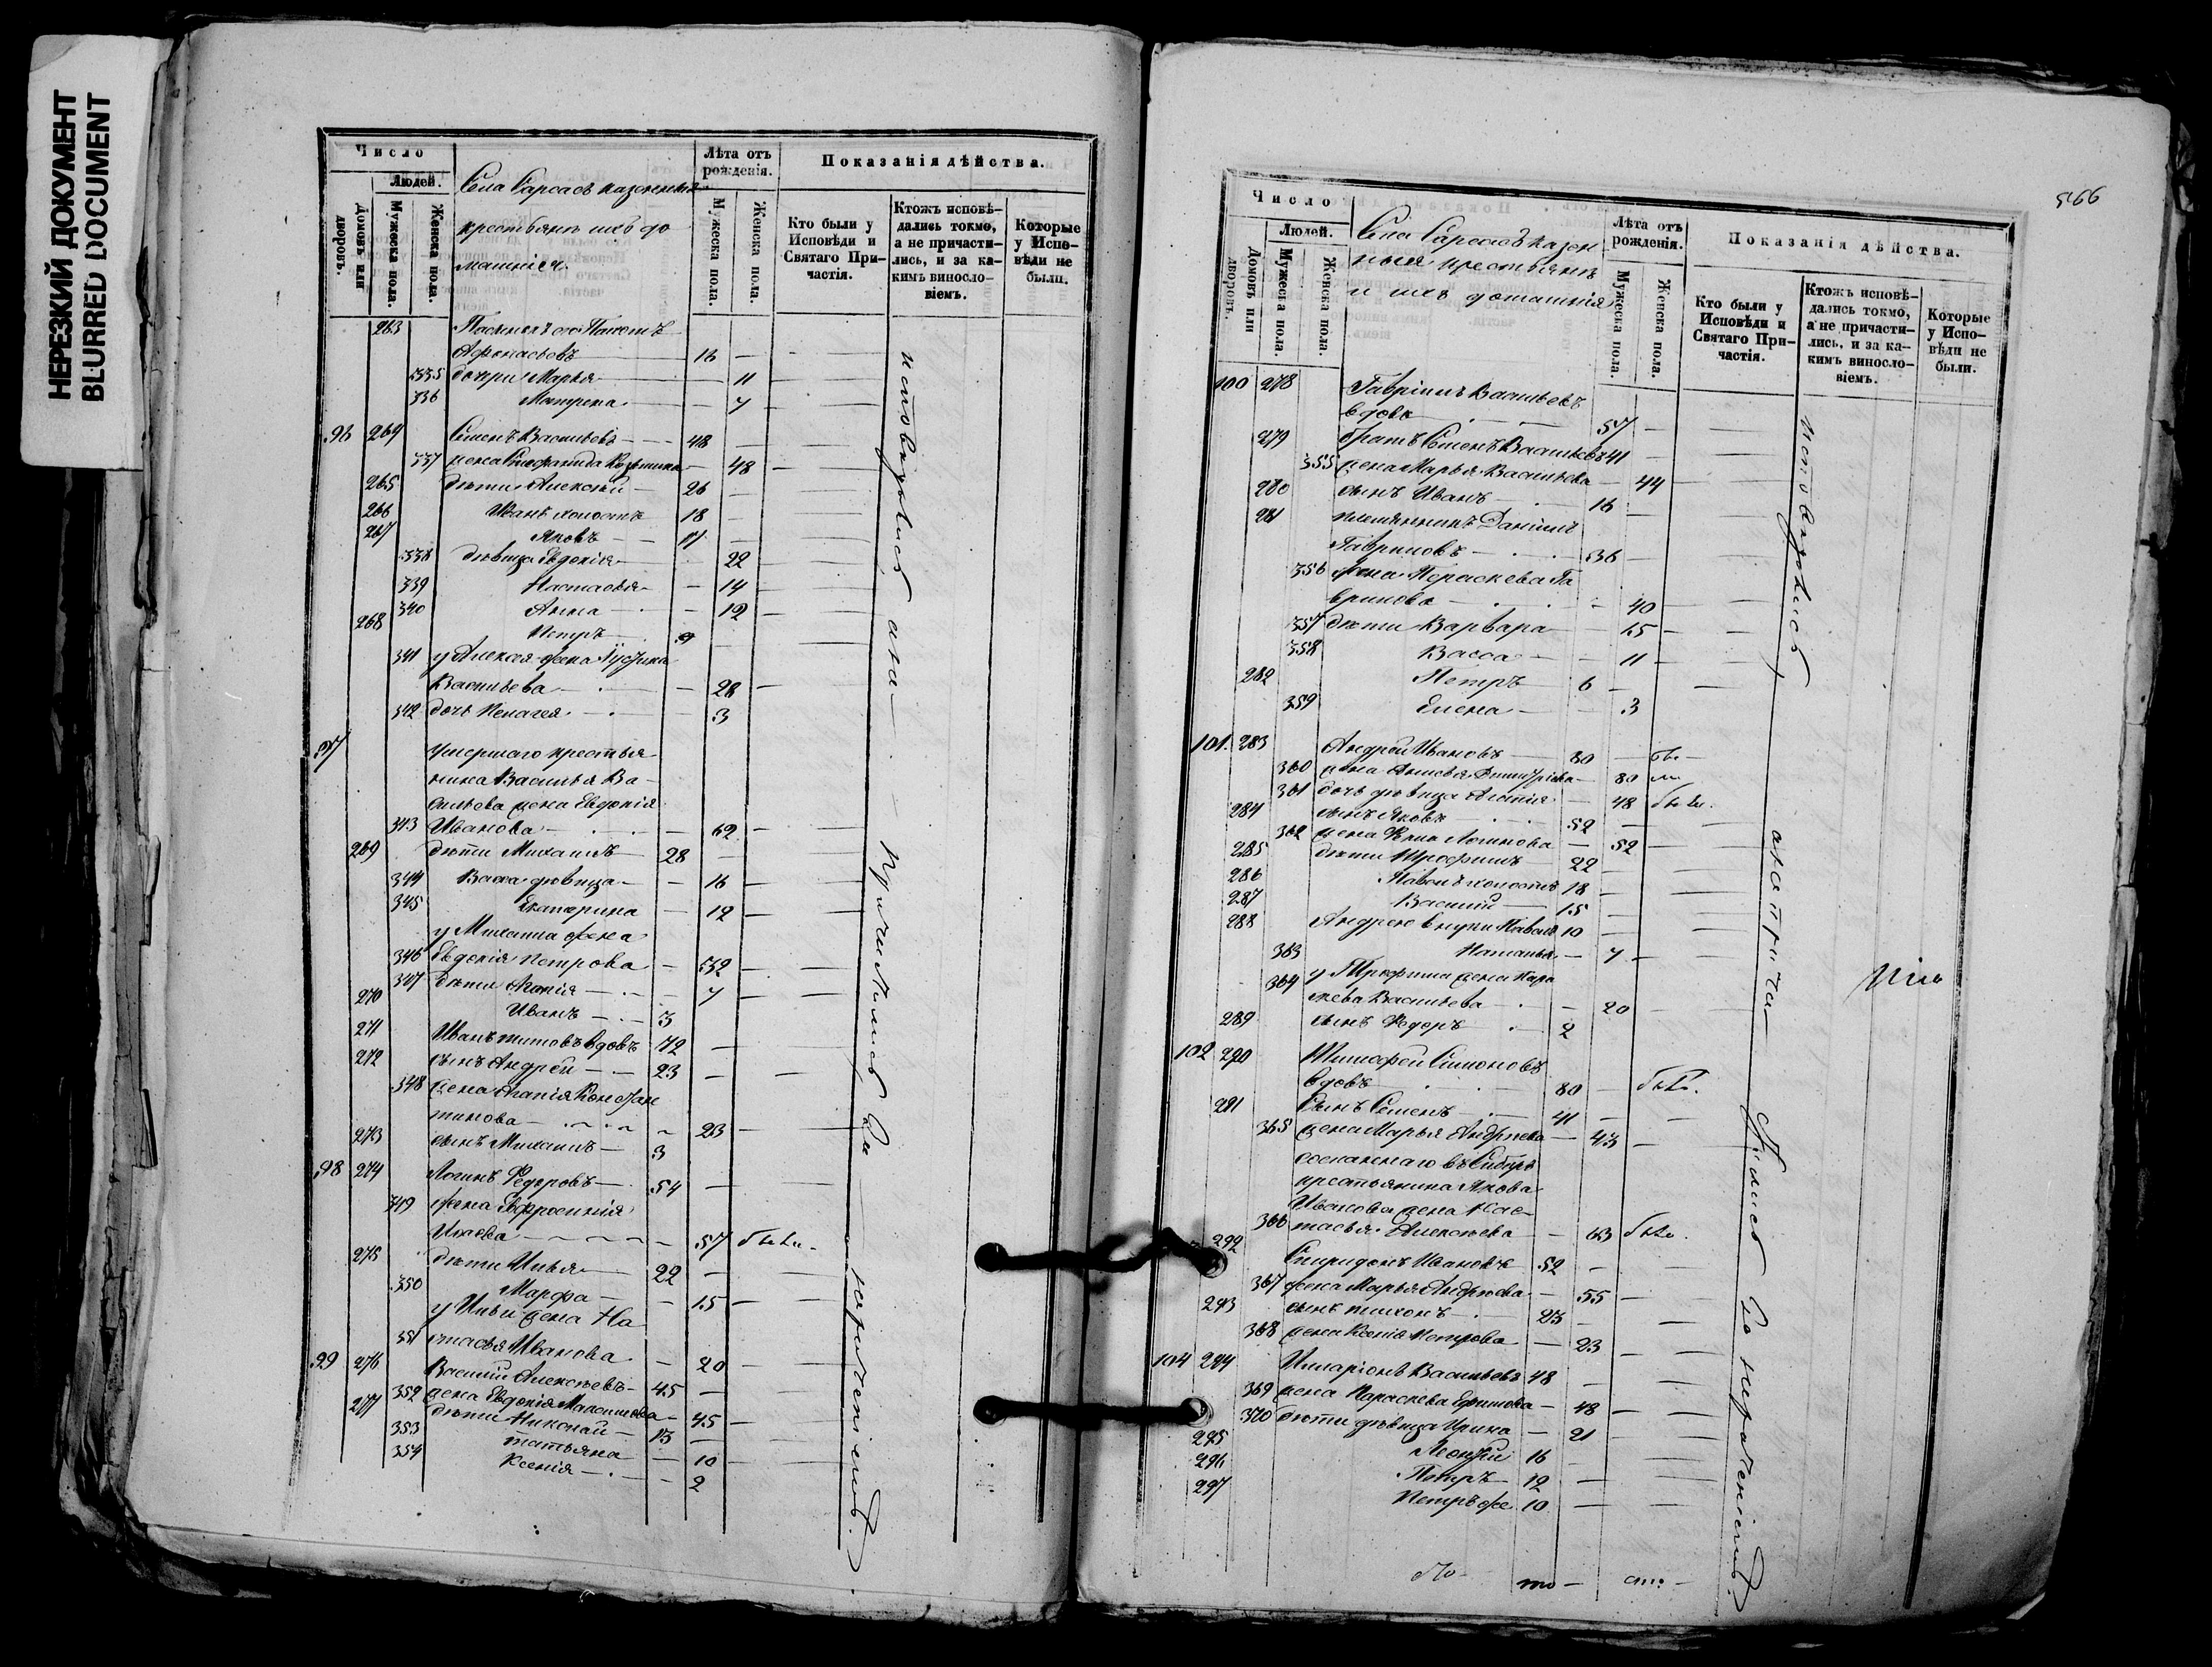 НЕРЕЗКИЙ ДОКУМЕНТ
BLURRED DOCUMENT
Число
Людей.
Домовъ или дворовъ.
Мужеска пола.
Женска пола.
Села Сарсасъ казенныхъ
крестьянъ ихъ до
машнія
Лѣта отъ рожденія.
Мужеска пола.
Женска пола.
Показанія дѣйства.
Кто были у Исповѣди и Святаго Причастія.
Ктожъ исповѣдались токмо, а не причастились, и за какимъ винословіемъ.
Которые у Исповѣди не были.
263
Афонасьевъ 16
335 дочери Марья 11
336 Матрена 7
96 264 Семенъ Васильевъ 48
337 жена Стефанида 48
265 дѣти Алексѣй 26
266 Иванъ холостъ 18
267 Яковъ 17
338 дѣвица Евдокія 22
339 Настасья 14
340 Анна 12
268 Петръ 9
341 у Алексея жена Іустина
Васильева 28
342 дочь Пелагея 3
97 умершаго крестья
нина Василья Ва
сильева жена Евдокія
343 Иванова 62
269 дѣти Михаилъ 28
344 Васса дѣвица 16
345 Екатерина 12
у Михаила жена
346 Евдокія Петрова 32
347 дѣти Агапія 7
270 Иванъ 3
271 Иванъ Титовъ вдовъ 72
272 сынъ Андрей 23
348 жена Агапія Констан
тинова 23
273 сынъ Михаилъ 3
98 274 Логинъ Федоровъ 54
349 жена Евфросинія
57 была
275 дѣти Илья 22
350 Марфа 15
у Ильи жена На
351 стасья Иванова 20
99 276 Василій Алексѣевъ 45
352 жена Евдокія Максимова 45
277 дѣти Николай 13
353 Татьяна 10
354 Ксенія 2
исповѣдались а не причастились за нераченіемъ.
566
Число
Людей.
Домовъ или дворовъ.
Мужеска пола.
Женска пола.
Села Сарсасъ казен
ныя крестьянъ
и ихъ домашнія
Лѣта отъ рожденія.
Мужеска пола.
Женска пола.
Показанія дѣйства.
Кто были у Исповѣди и Святаго Причастія.
Ктожъ исповѣдались токмо, а не причастились, и за какимъ винословіемъ.
Которые у Исповѣди не были.
100 278 Гавріилъ Васильевъ
вдовъ 57
279 братъ Семенъ Васильевъ 41
355 жена Марья Васильева 44
280 сынъ Иванъ 16
281 племянникъ Даніилъ
Гавриловъ 36
356 жена Параскева Га
врилова 40
357 дѣти Варвара 15
358 Васса 11
282 Петръ 6
359 Елена 3
101 283 Андрей Ивановъ 80
360 жена 80
361 дочь дѣвица 48 была.
284 сынъ Яковъ 52
362 жена Анна Логинова 52
285 дѣти Трофимъ 22
286 Павелъ холостъ 18
287 Василій 15
288 Андрею внуки Павелъ 10
363 Наталья 7
364 у Трофима жена Пара
скева Васильева 20
289 сынъ Федоръ 2
102 290 Тимофей Симоновъ
вдовъ 80 былъ.
291 Сынъ Семенъ 41
365 жена Марья Андреева 43
сосланнаго въ Сибирь
крестьянина Якова
Иванова жена Нас
366 тасья Алексѣева 63 была.
292 Спиридонъ Ивановъ 52
367 жена Марья Андреева 55
293 сынъ Тихонъ 23
368 жена Ксенія Петрова 23
104 294 Иларіонъ Васильевъ 48
369 жена Параскева Ефимова 48
370 дѣти дѣвица Ирина 21
295 Леонтій 16
296 Петръ 12
297 Петръ же 10
исповѣдались а не причастились за нераченіемъ.